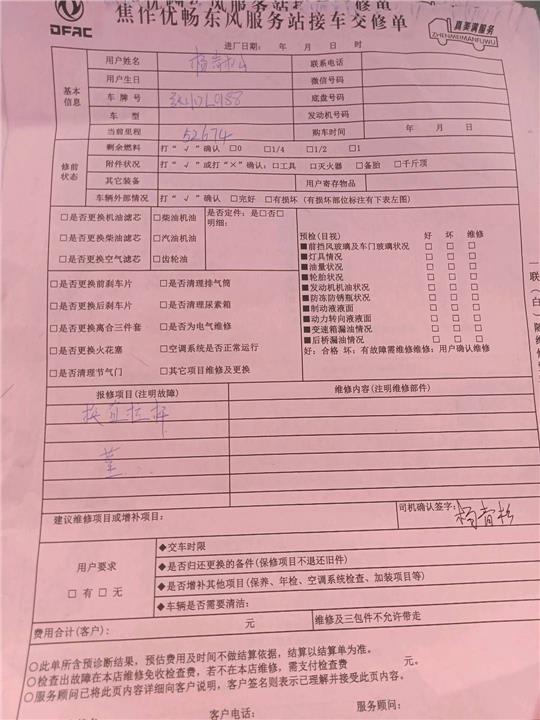 DFAC
焦作优畅东风服务站接车交修单
真美满服务
ZHENMEIMANFUWU
进厂日期： 年 月 日 时
基本信息
用户姓名 联系电话
用户生日 微信号码
车牌号 底盘号码
车 型 发动机号码
当前里程 52674 购车时间 年 月 日
修前状态
剩余燃料 打“√”确认 □0 □1/4 □1/2 □1
附件状况 打“√”或打“×”确认：□工具 □灭火器 □备胎 □千斤顶
其它装备 用户寄存物品
车辆外部情况 打“√”确认 □完好 □有损坏（有损坏部位标注有下表左图）
□是否更换机油滤芯 □柴油机油 是否定件：是□否□
□是否更换柴油滤芯 □汽油机油 明细：
□是否更换空气滤芯 □齿轮油
□是否更换前刹车片 □是否清理排气筒
□是否更换后刹车片 □是否清理尿素箱
□是否更换离合三件套 □是否为电气维修
□是否更换火花塞 □空调系统是否正常运行
□是否清理节气门 □其它项目维修及更换
预检(目视) 好 坏 维修
■前挡风玻璃及车门玻璃状况 □ □ □
■灯具情况 □ □ □
■油量状况 □ □ □
■轮胎状况 □ □ □
■发动机机油状况 □ □ □
■防冻防锈瓶状况 □ □ □
■制动液液面 □ □ □
■动力转向液液面 □ □ □
■变速箱漏油情况 □ □ □
■后桥漏油情况 □ □ □
好：合格 坏：有故障需维修维修：用户确认维修
报修项目(注明故障) 维修内容(注明维修部件)
换直拉杆
建议维修项目或增补项目：
司机确认签字： 杨青松
用户要求
□ 有 □ 无
◆交车时限
◆是否归还更换的备件(保修项目不退还旧件)
◆是否增补其他项目(保养、年检、空调系统检查、加装项目等)
◆车辆是否需要清洁：
费用合计(客户)： 元 维修及三包件不允许带走
○此单所含预诊断结果，预估费用及时间不做结算依据，结算以结算单为准。
○检查出故障在本店维修免收检查费，若不在本店维修，需支付检查费 元。
○服务顾问已将此页内容详细向客户说明，客户签名则表示已理解并接受此页内容。
客户电话： 服务顾问：